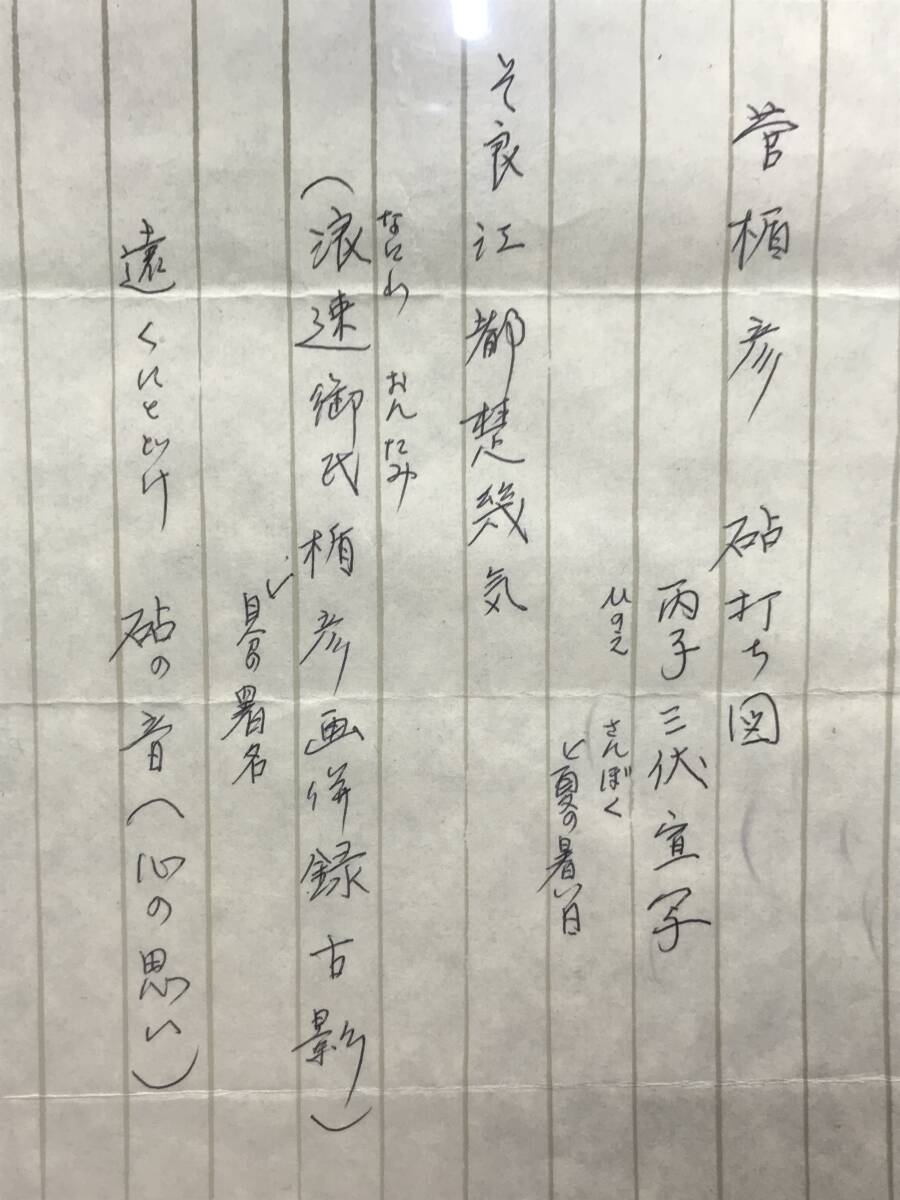 菅楯彦 砧打ち図
丙子三伏宣写
ひのえ さんぼく
ど夏の暑い日
そ良江都楚幾気
なにわ おんたみ
(浪速御民楯彦画併録古影)
の署名
遠くにとどけ 砧の音(心の思い)